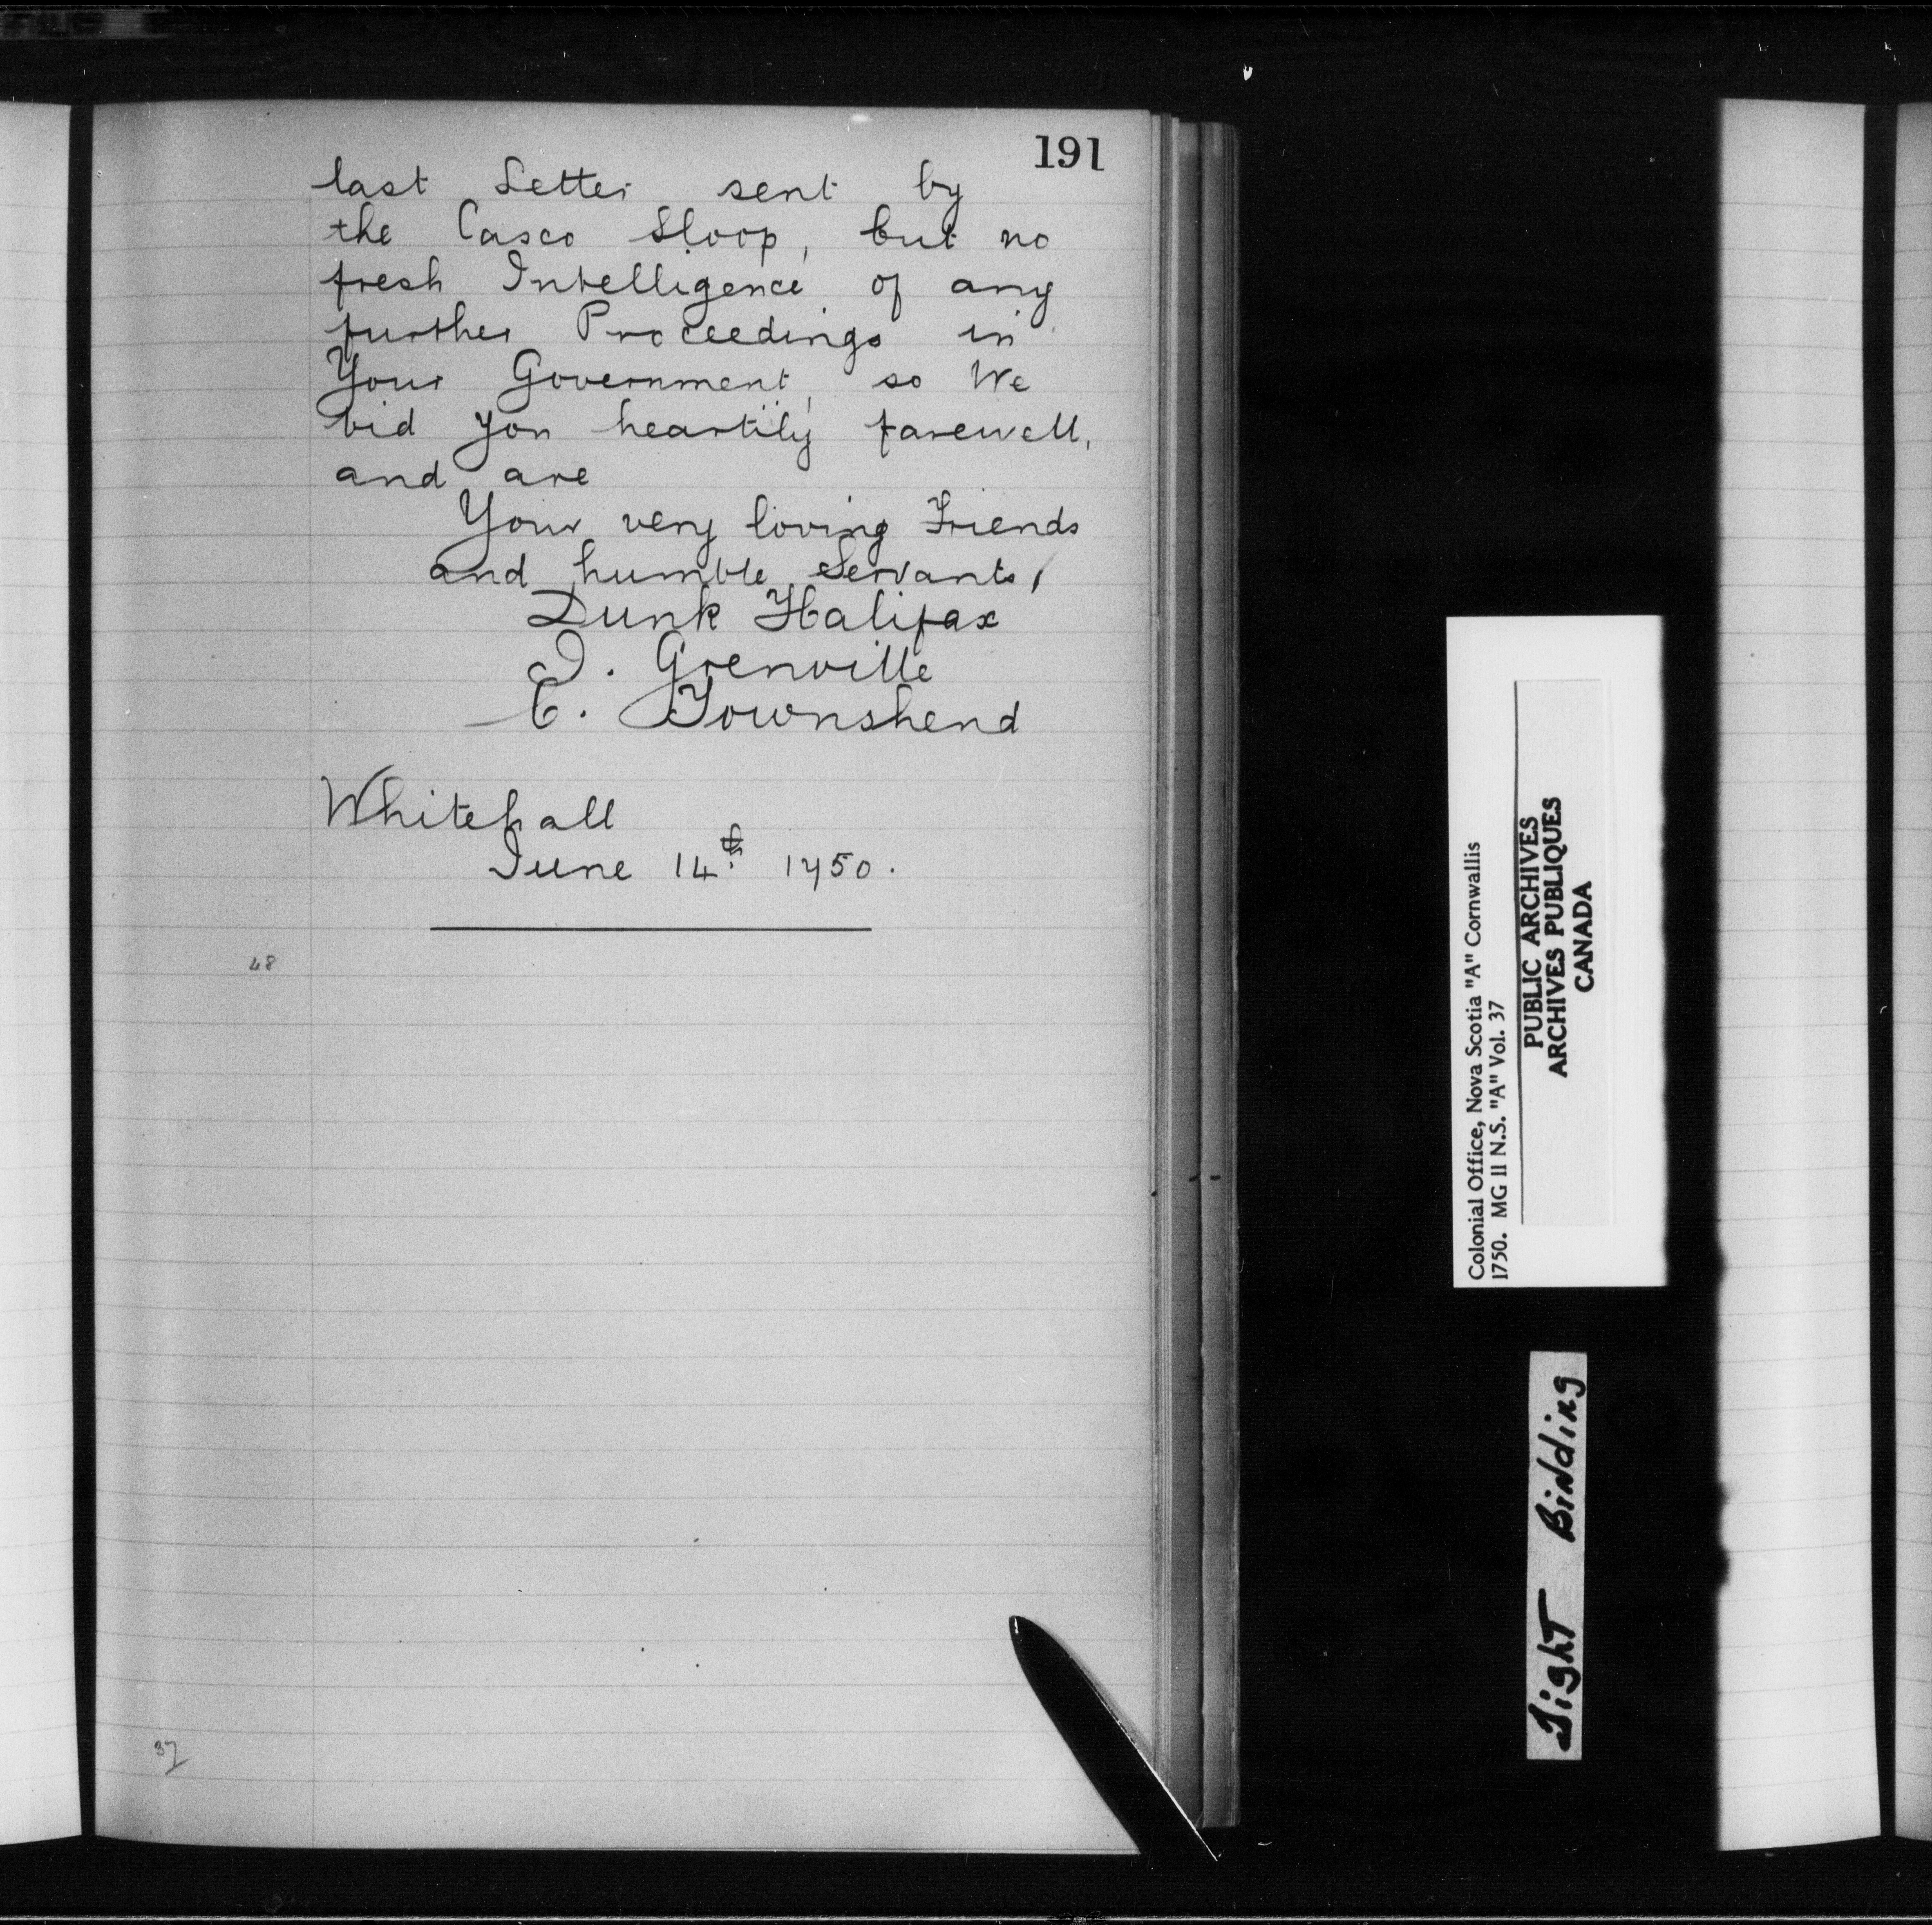 191
last Letter sent by
the Casco Sloop, but no
fresh Intelligence of any
further Proceedings in
Your Government, so We
bid you heartily farewell,
and are
Your very loving Friends
and humble Servants,
Dunk Halifax
J. Grenville
C. Townshend
Whitehall
June 14th 1750.
48
37
Colonial Office, Nova Scotia "A" Cornwallis
1750. MG 11 N.S. "A" Vol. 37
PUBLIC ARCHIVES
ARCHIVES PUBLIQUES
CANADA
Tight Binding